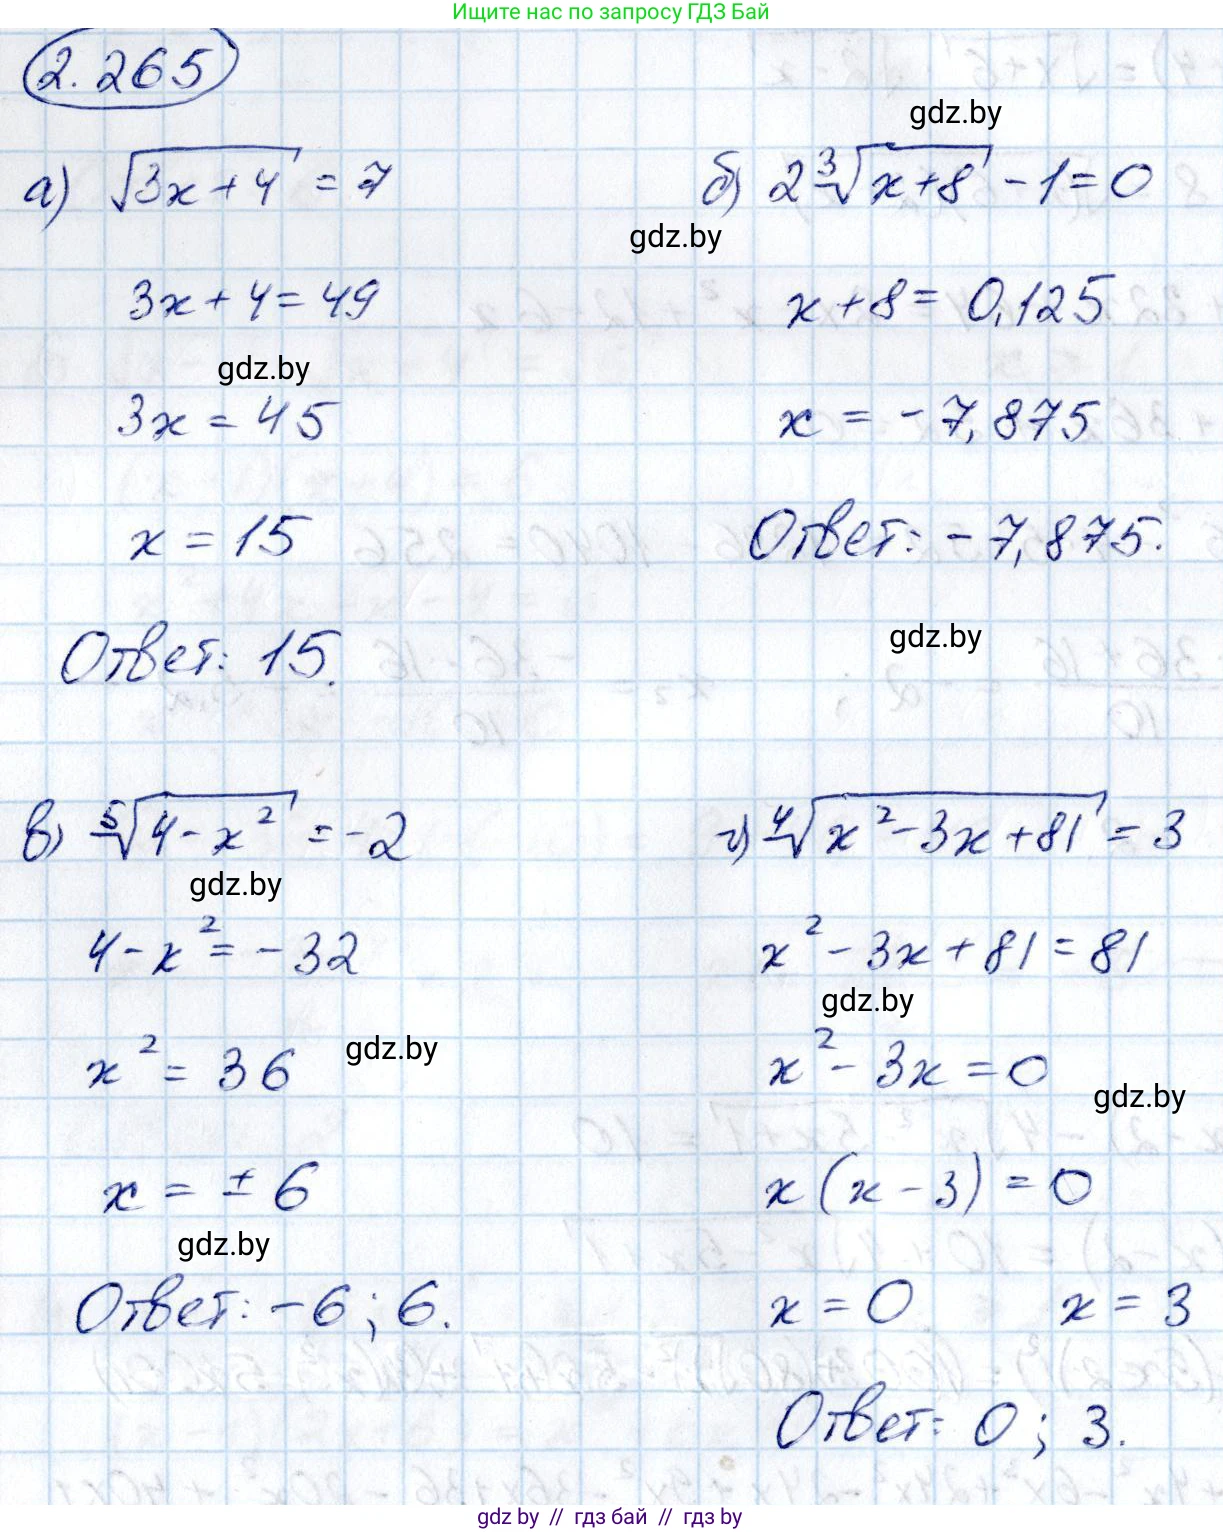 Ищите нас по запросу ГДЗ Бай
2.265
gdz.by
а) √(3x+4) = 7
б) 2∛(x+8) - 1 = 0
gdz.by
3x + 4 = 49
x + 8 = 0,125
gdz.by
3x = 45
x = - 7,875
x = 15
Ответ: - 7,875.
Ответ: 15.
gdz.by
в) ⁵√(4 - x²) = -2
г) ⁴√(x² - 3x + 81) = 3
gdz.by
4 - x² = - 32
x² - 3x + 81 = 81
gdz.by
x² = 36
gdz.by
x² - 3x = 0
gdz.by
x = ± 6
x (x - 3) = 0
gdz.by
Ответ: -6 ; 6.
x = 0 x = 3
Ответ: 0 ; 3.
gdz.by // гдз бай // гдз by